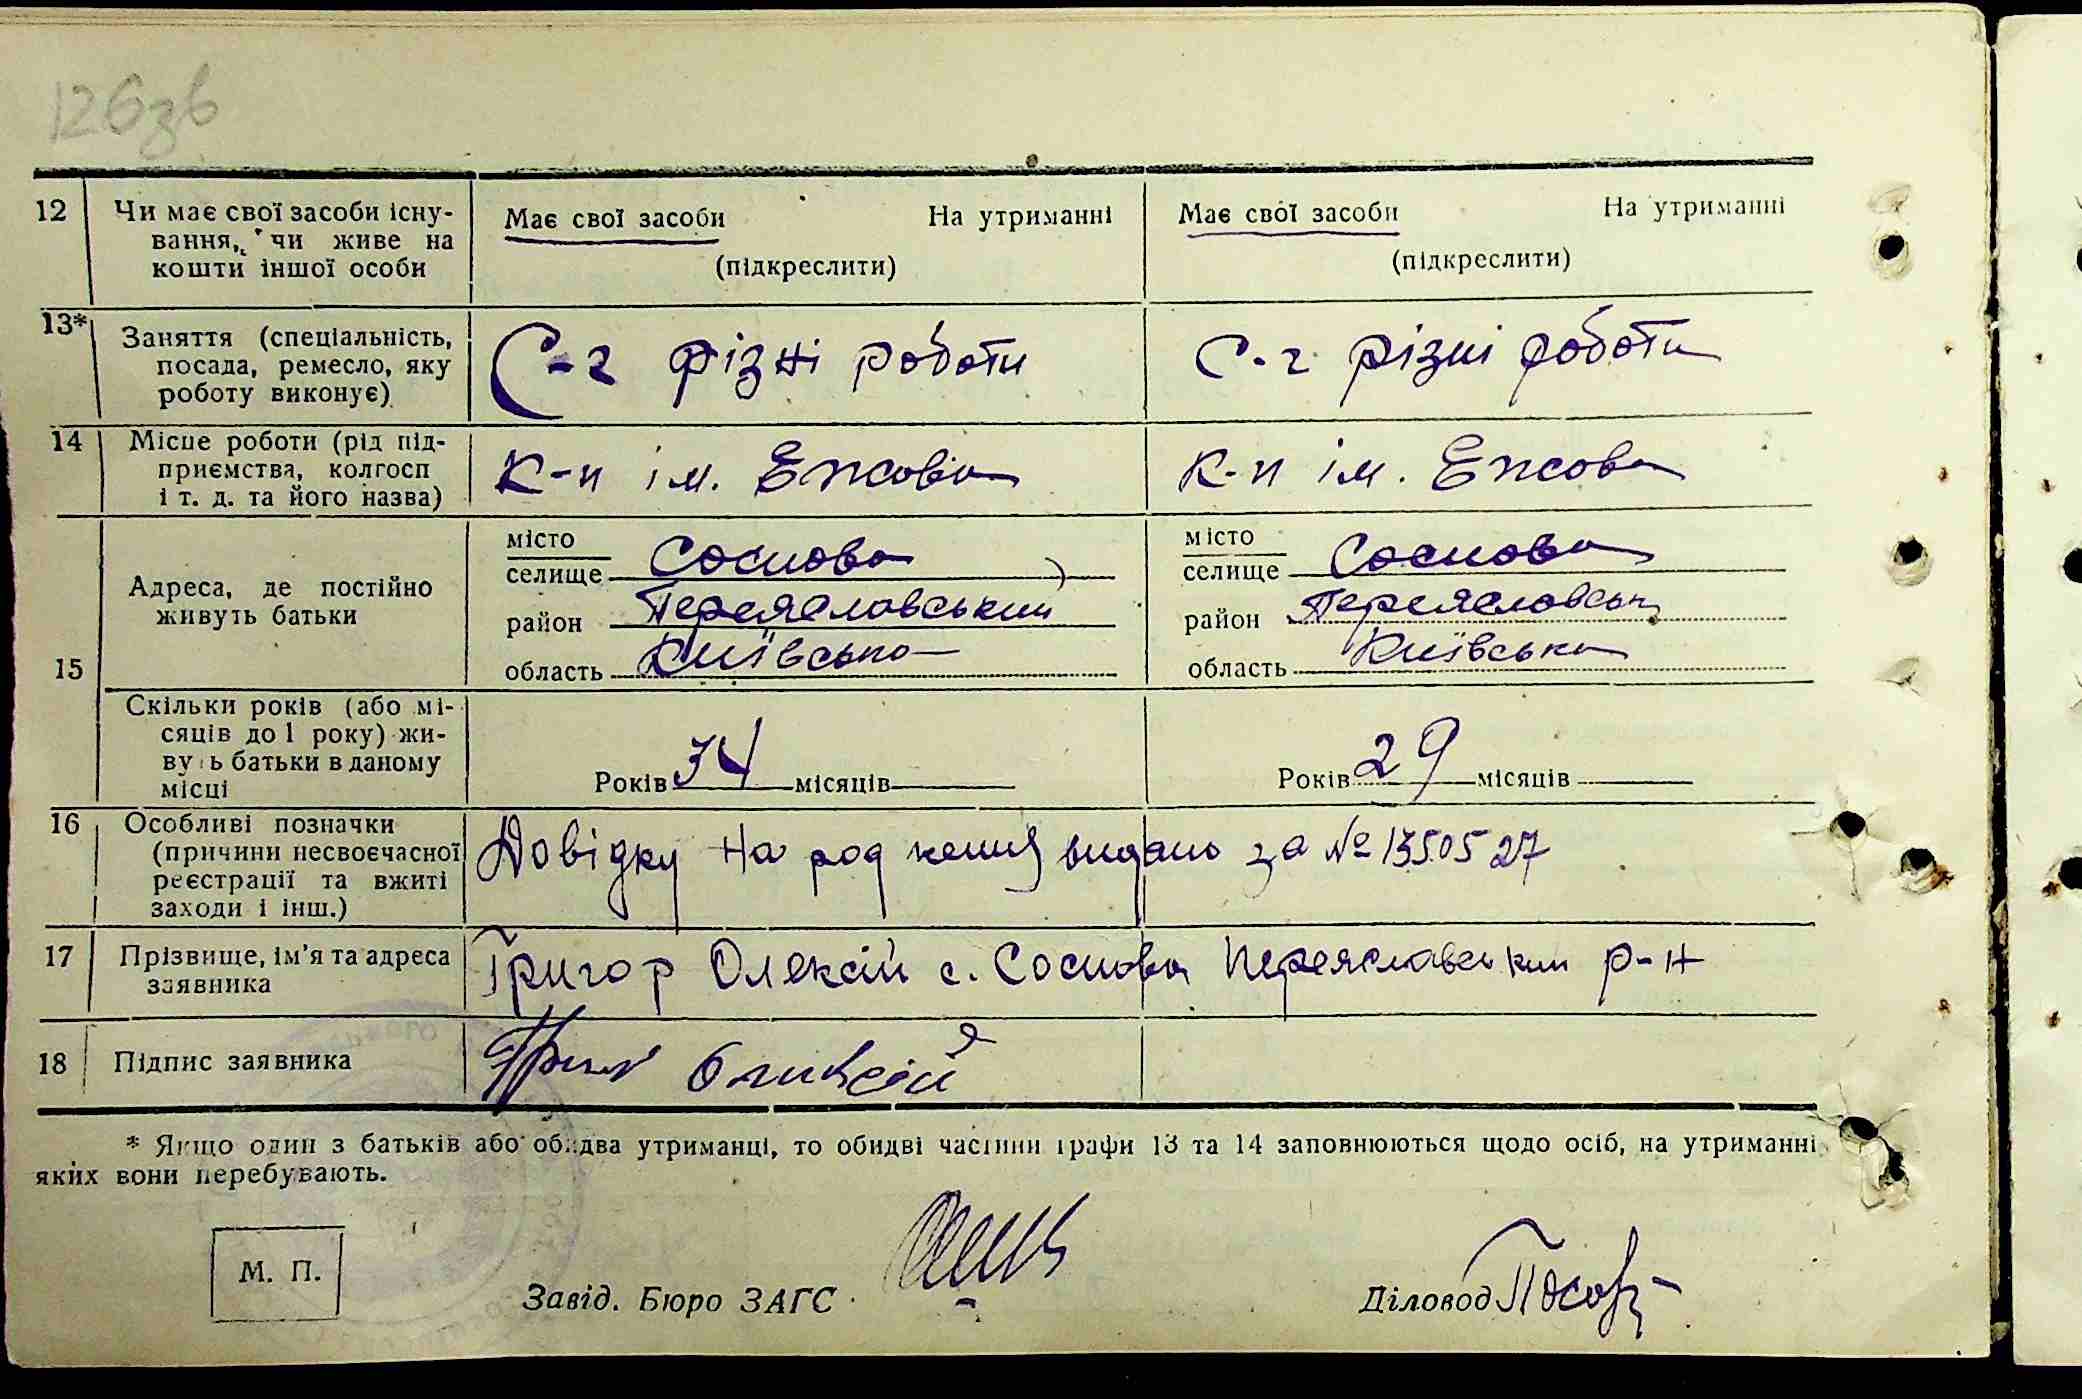 126зв
12 Чи має свої засоби існу-
вання, чи живе на
кошти іншої особи
Має свої засоби На утриманні
(підкреслити)
Має свої засоби На утриманні
(підкреслити)
13* Заняття (спеціальність,
посада, ремесло, яку
роботу виконує)
С-г різні роботи
С-г різні роботи
14 Місце роботи (рід під-
приємства, колгосп
і т. д. та його назва)
К-п ім. Єжова
К-п ім. Єжова
15 Адреса, де постійно
живуть батьки
місто
селище Соснова
район Переяславський
область Київська
місто
селище Соснова
район Переяславськ
область Київська
Скільки років (або мі-
сяців до 1 року) жи-
вуть батьки в даному
місці
Років 34 місяців
Років 29 місяців
16 Особливі позначки
(причини несвоєчасної
реєстрації та вжиті
заходи і інш.)
Довідку на родження видано за № 1350527
17 Прізвище, ім'я та адреса
заявника
Григор Олексій с. Соснова Переяславський р-н
18 Підпис заявника
* Якщо один з батьків або обидва утриманці, то обидві частини графи 13 та 14 заповнюються щодо осіб, на утриманні
яких вони перебувають.
М. П.
Завід. Бюро ЗАГС
Діловод